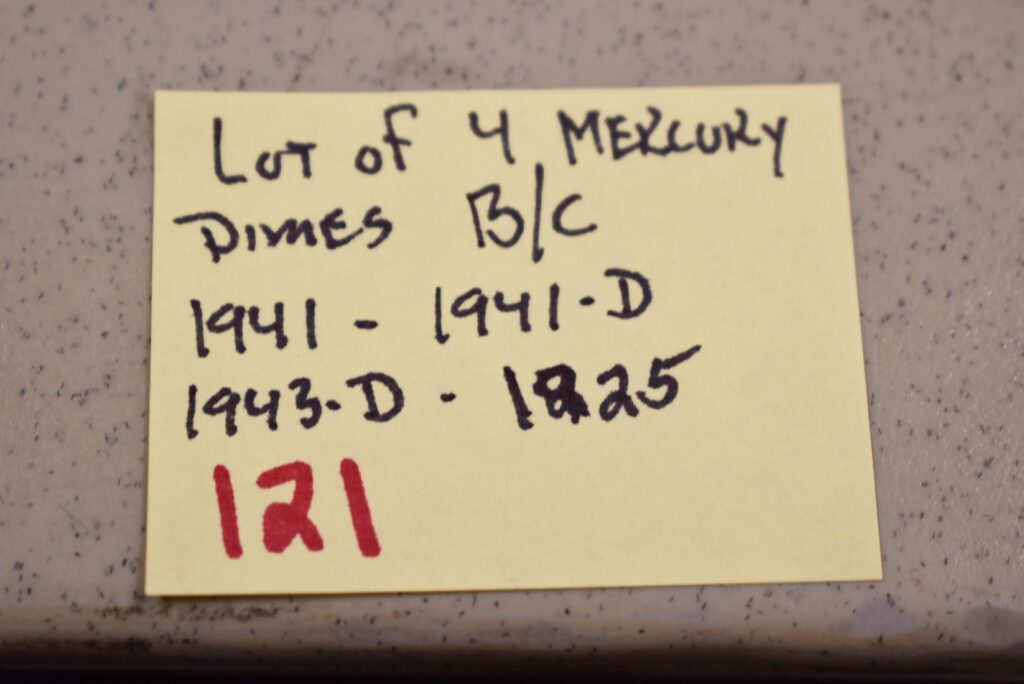 LOT OF 4 MERCURY
DIMES B/C
1941 - 1941-D
1943-D -
121